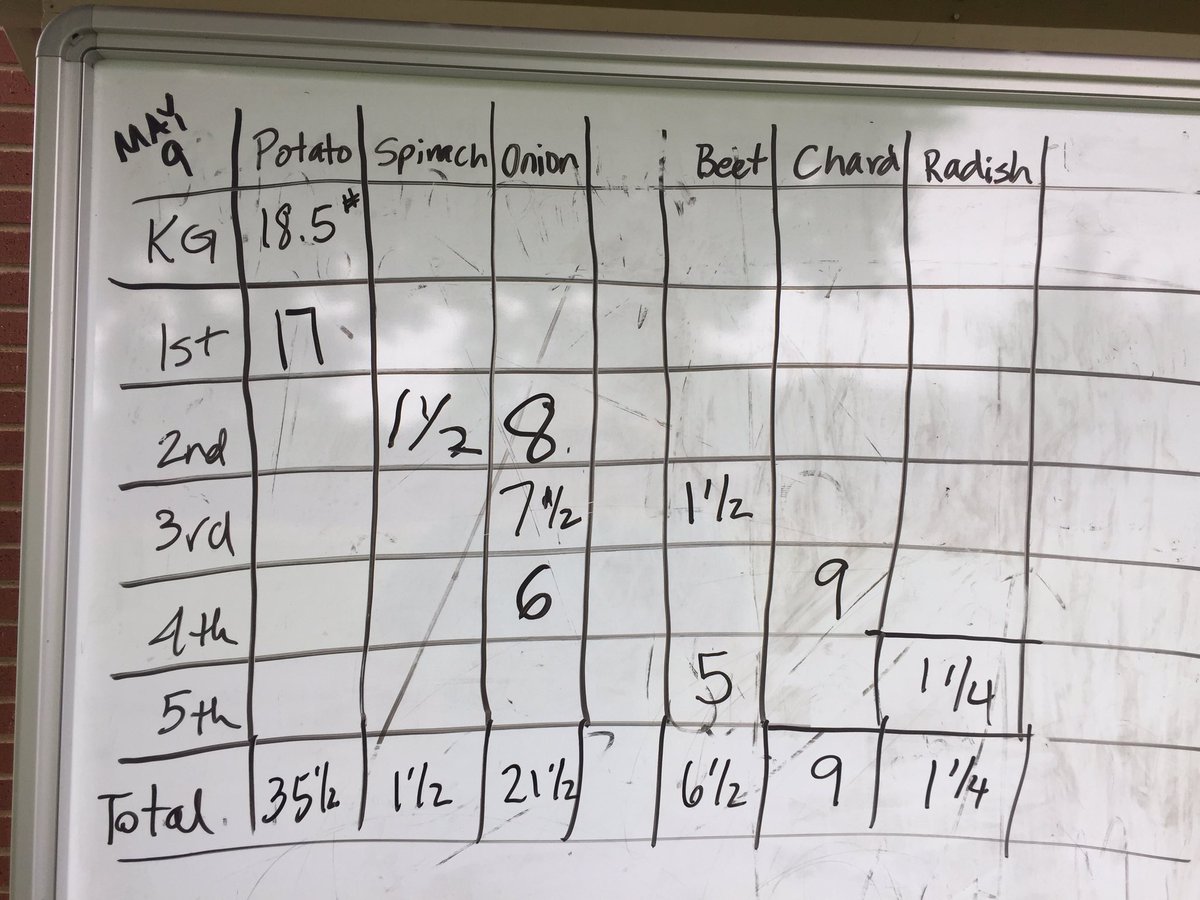 MAY 9 Potato Spinach Onion Beet Chard Radish
KG 18.5#
1st 17
2nd 1 1/2 8.
3rd 7 1/2 1 1/2
4th 6 9
5th 5 1 1/4
Total 35 1/2 1 1/2 21 1/2 6 1/2 9 1 1/4